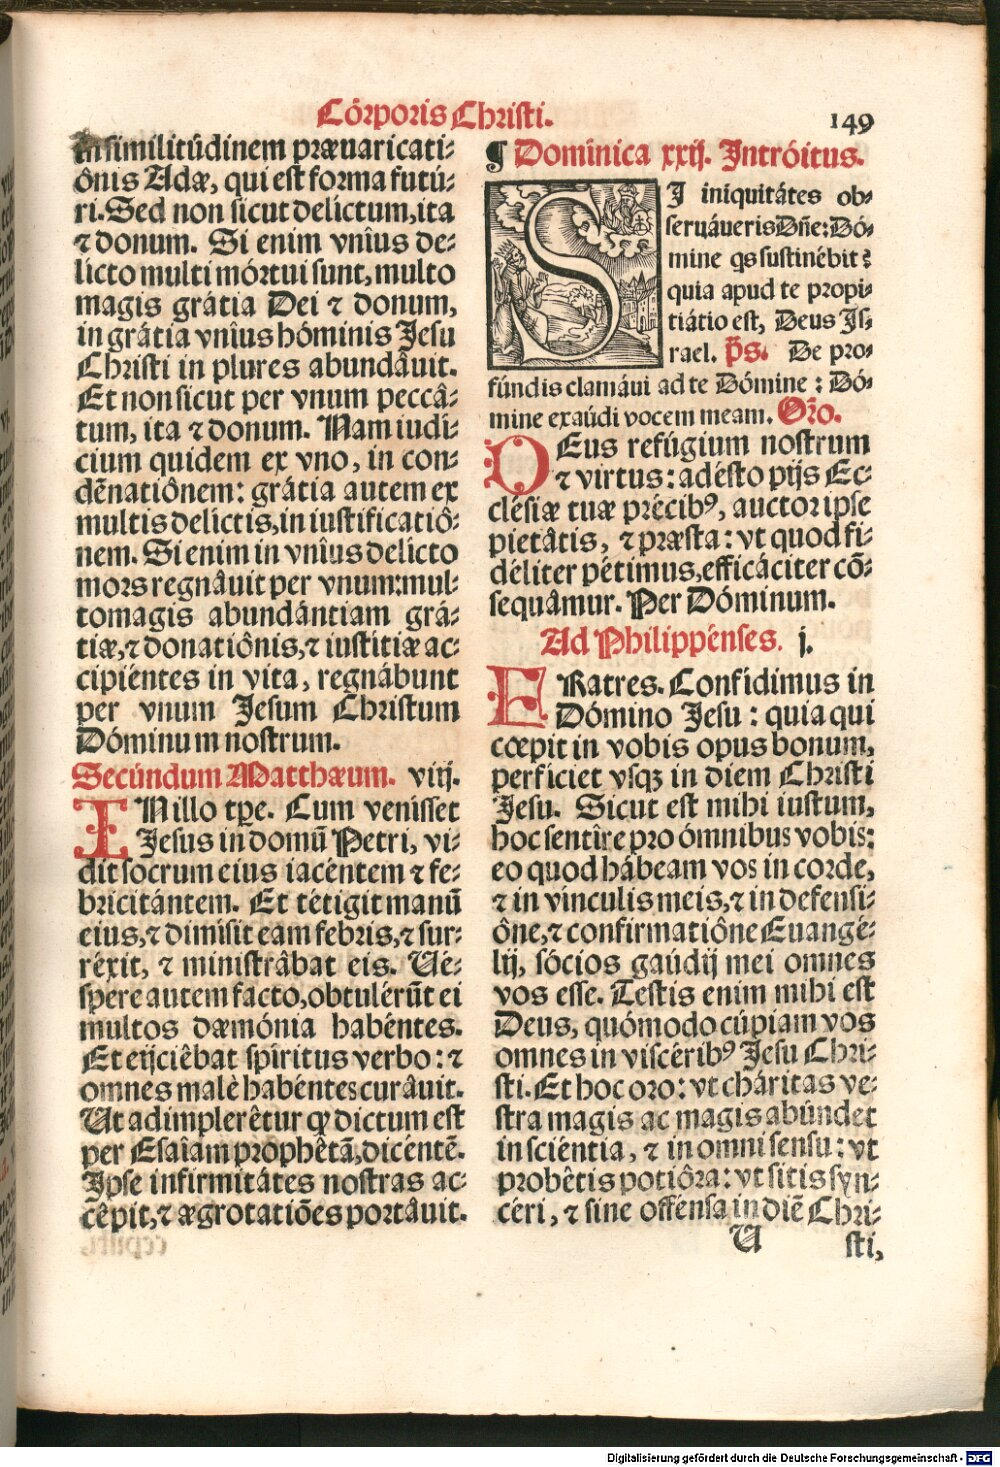 Córporis Christi.
149
in similitûdinem præuaricati-
ônis Adæ, qui est forma futú-
ri. Sed non sicut delictum, ita
⁊ donum. Si enim vnîus de-
licto multi mórtui sunt, multo
magis grátia Dei ⁊ donum,
in grátia vnîus hóminis Jesu
Christi in plures abundâuit.
Et non sicut per vnum peccâ-
tum, ita ⁊ donum. Nam iudi-
cium quidem ex vno, in con-
dēnatiônem: grátia autem ex
multis delictis, in iustificatiô-
nem. Si enim in vnîus delicto
mors regnâuit per vnum: mul-
tomagis abundántiam grá-
tiæ, ⁊ donatiônis, ⁊ iustitiæ ac-
cipiéntes in vita, regnábunt
per vnum Jesum Christum
Dóminum nostrum.
Secúndum Matthæum. viij.
IN illo tp̄e. Cum venisset
Jesus in domū Petri, vi-
dit socrum eius iacéntem ⁊ fe-
bricitántem. Et tétigit manū
eius, ⁊ dimîsit eam febris, ⁊ sur-
réxit, ⁊ ministrâbat eis. Vé-
spere autem facto, obtulérūt ei
multos dæmónia habéntes.
Et eijciêbat spíritus verbo: ⁊
omnes malè habéntes curâuit.
Vt adimplerêtur ꝙ dictum est
per Esaîam prôphêtā, dicéntē.
Ipse infirmitátes nostras ac-
cêpit, ⁊ ægrotatiōes portâuit.
¶ Domînica xxij. Intróitus.
SI iniquitátes ob-
seruáueris Dn̄e: Dó-
mine qs sustinébit?
quia apud te propi-
tiátio est, Deus Is-
rael. p̄s. De pro-
fúndis clamáui ad te Dómine: Dó-
mine exaúdi vocem meam. Or̄o.
DEus refúgium nostrum
⁊ virtus: adésto pijs Ec-
clésiæ tuæ précibꝰ, auctor ipse
pietâtis, ⁊ præsta: vt quod fi-
déliter pétimus, efficáciter cō-
sequâmur. Per Dóminum.
Ad Philippénses. j.
FRatres. Confídimus in
Dómino Jesu: quia qui
cœpit in vobis opus bonum,
perficiet vsqꝫ in diem Christi
Jesu. Sicut est mihi iustum,
hoc sentîre pro ómnibus vobis:
eo quod hábeam vos in corde,
⁊ in vínculis meis, ⁊ in defensi-
ône, ⁊ confirmatiône Euangé-
lij, sócios gaúdij mei omnes
vos esse. Testis enim mihi est
Deus, quómodo cúpiam vos
omnes in viscéribꝰ Jesu Chri-
sti. Et hoc oro: vt cháritas ve-
stra magis ac magis abúndet
in sciéntia, ⁊ in omni sensu: vt
probêtis potiôra: vt sitis syn-
céri, ⁊ sine offénsa in diē Chri-
V
sti,
Digitalisierung gefördert durch die Deutsche Forschungsgemeinschaft - DFG